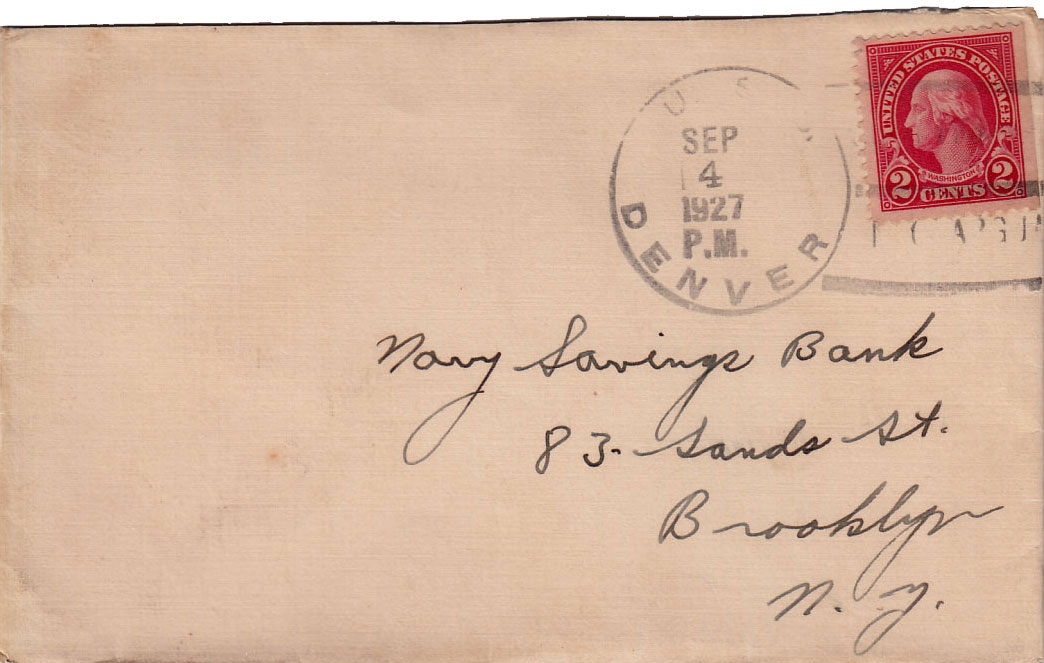 UNITED STATES POSTAGE
WASHINGTON
2 CENTS 2
SEP
4
1927
P.M.
DENVER
Navy Savings Bank
83 - Sands St.
Brooklyn
N. Y.